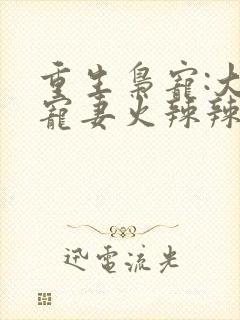 重生梟寵:大
寵妻火辣辣
迅電流光